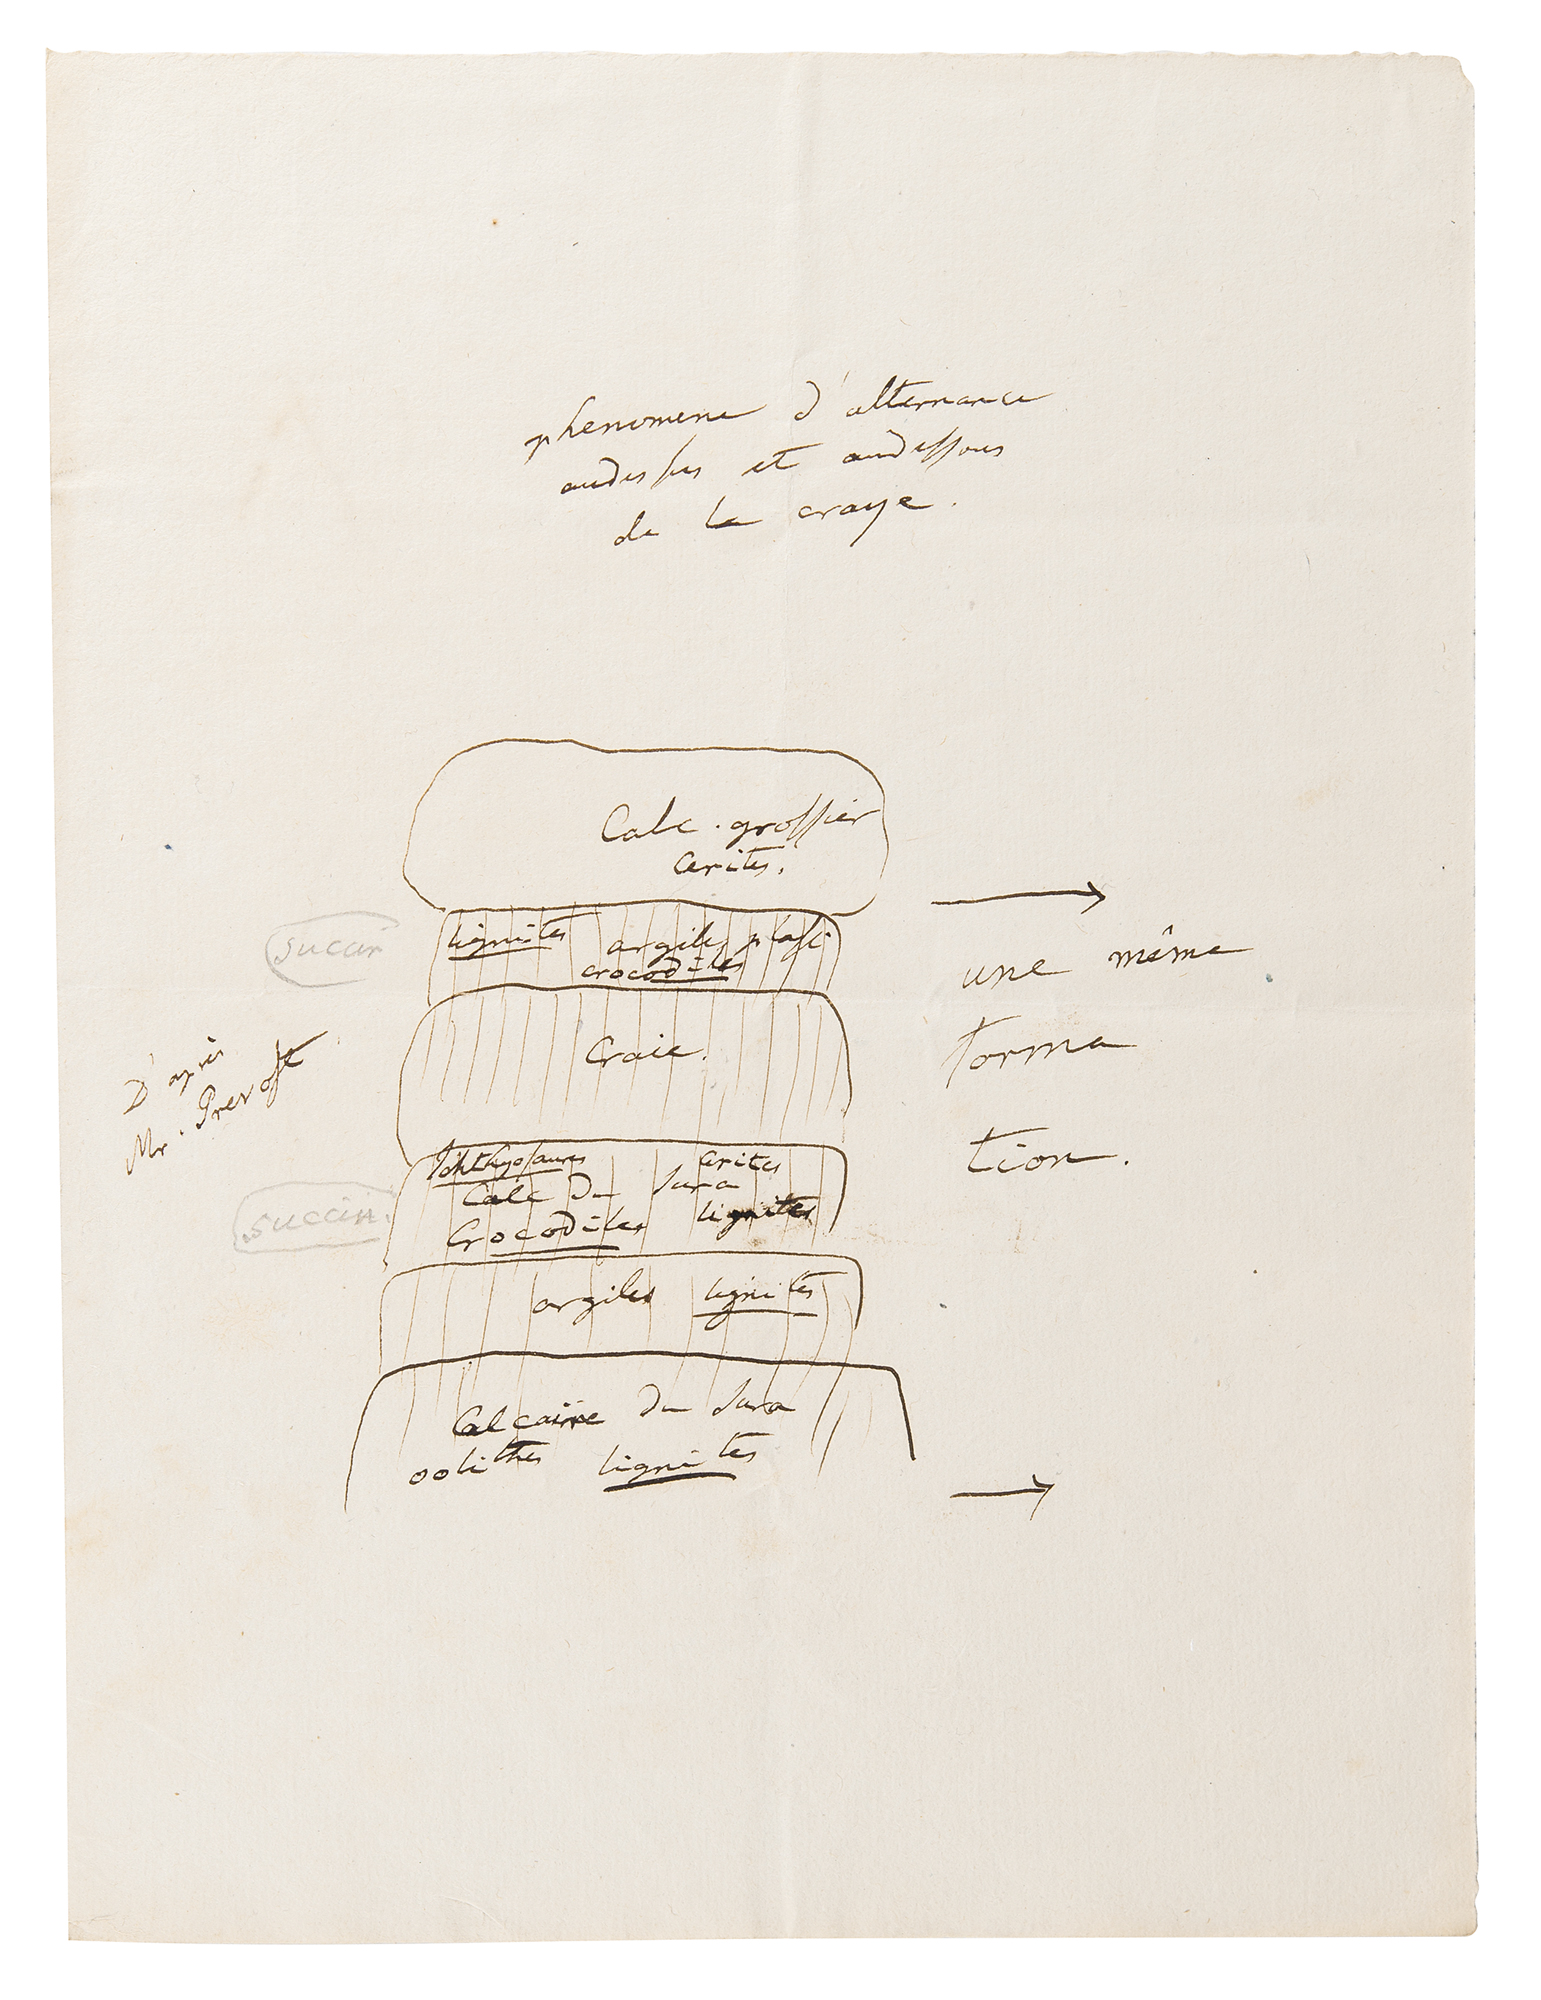 phenomene d'alternance
audessus et audessous
de la craye.
Calc. grossier
Cerites.
succin
lignites argiles plasti
crocodiles
une même
forma
tion.
Craie.
D'après
Mr. Prevost
Ichthyosaures Cerites
Calc du Jura
Crocodiles lignites
succin.
argiles lignites
Calcaire du Jura
oolithes lignites